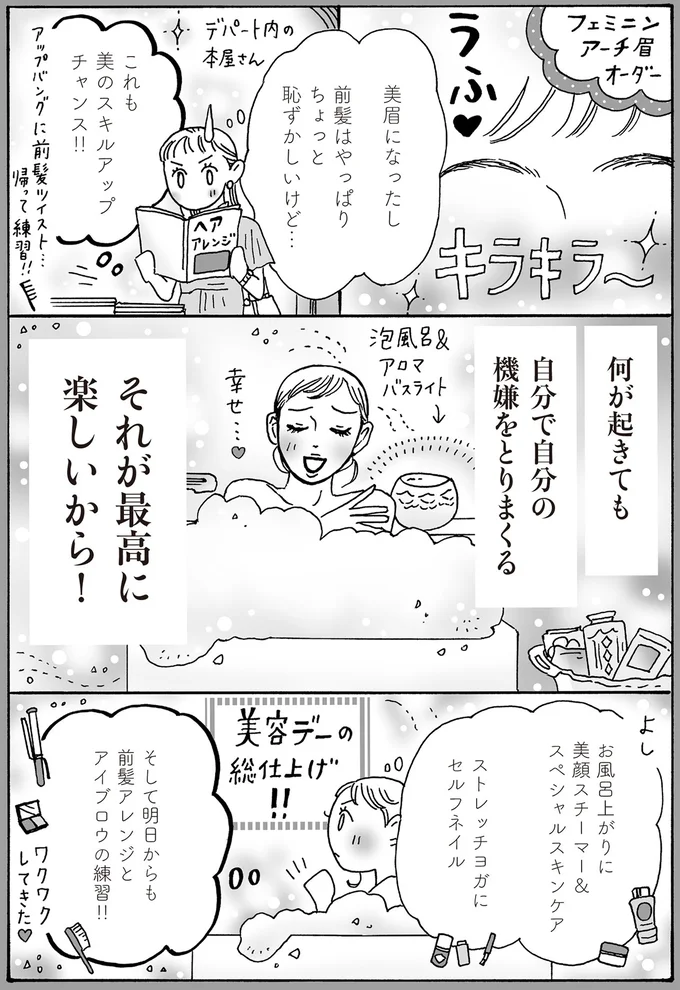 フェミニン
アーチ眉
オーダー
うふ♥
キラキラ〜
美眉になったし
前髪はやっぱり
ちょっと
恥ずかしいけど…
デパート内の
本屋さん
これも
美のスキルアップ
チャンス!!
ヘア
アレンジ
アップバングに前髪ツイスト…
帰って練習!!
何が起きても
自分で自分の
機嫌をとりまくる
泡風呂&
アロマ
バスライト
幸せ…♥
それが最高に
楽しいから！
よし
お風呂上がりに
美顔スチーマー&
スペシャルスキンケア
ストレッチヨガに
セルフネイル
美容デーの
総仕上げ
!!
そして明日からも
前髪アレンジと
アイブロウの練習!!
ワクワク
してきた♥